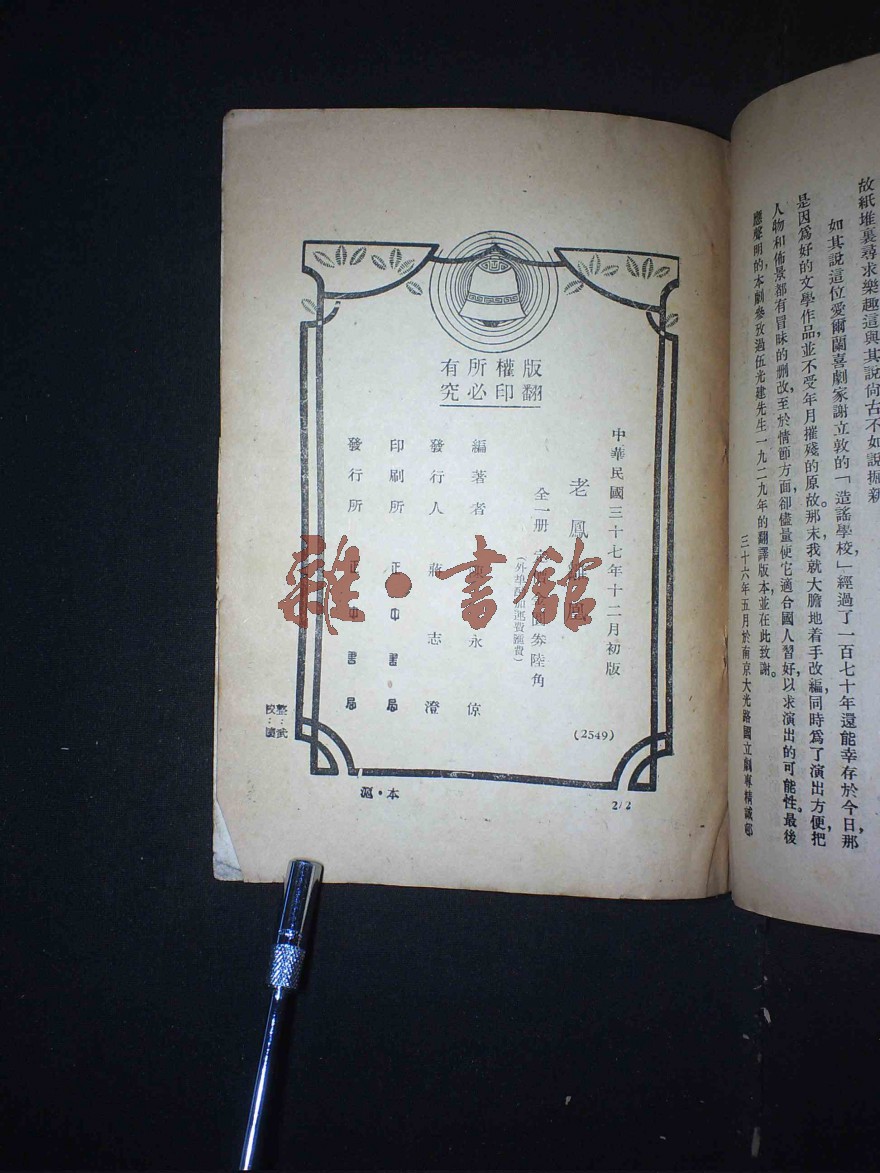 故紙堆裏尋求樂趣這與其說尙古不如說掘新
如其說這位愛爾蘭喜劇家謝立敦的「造謠學校，」經過了一百七十年還能幸存於今日，那
是因爲好的文學作品，並不受年月摧殘的原故。那末我就大膽地着手改編，同時爲了演出方便，把
人物和佈景都有冒昧的刪改，至於情節方面，卻儘量使它適合國人習好，以求演出的可能性。最後
應聲明的，本劇參攷過伍光建先生一九二九年的翻譯版本，並在此致謝。
三十六年五月於南京大光路國立劇專精誠邨
版權所有
翻印必究
中華民國三十七年十二月初版
老鳳凰
全一册 定價金圓券陸角
(外埠酌加運費匯費)
編著者 永倞
發行人 蔣志澄
印刷所 正中書局
發行所 正中書局
(2549)
整：武
校：
滬・本
2/2
雜・書館